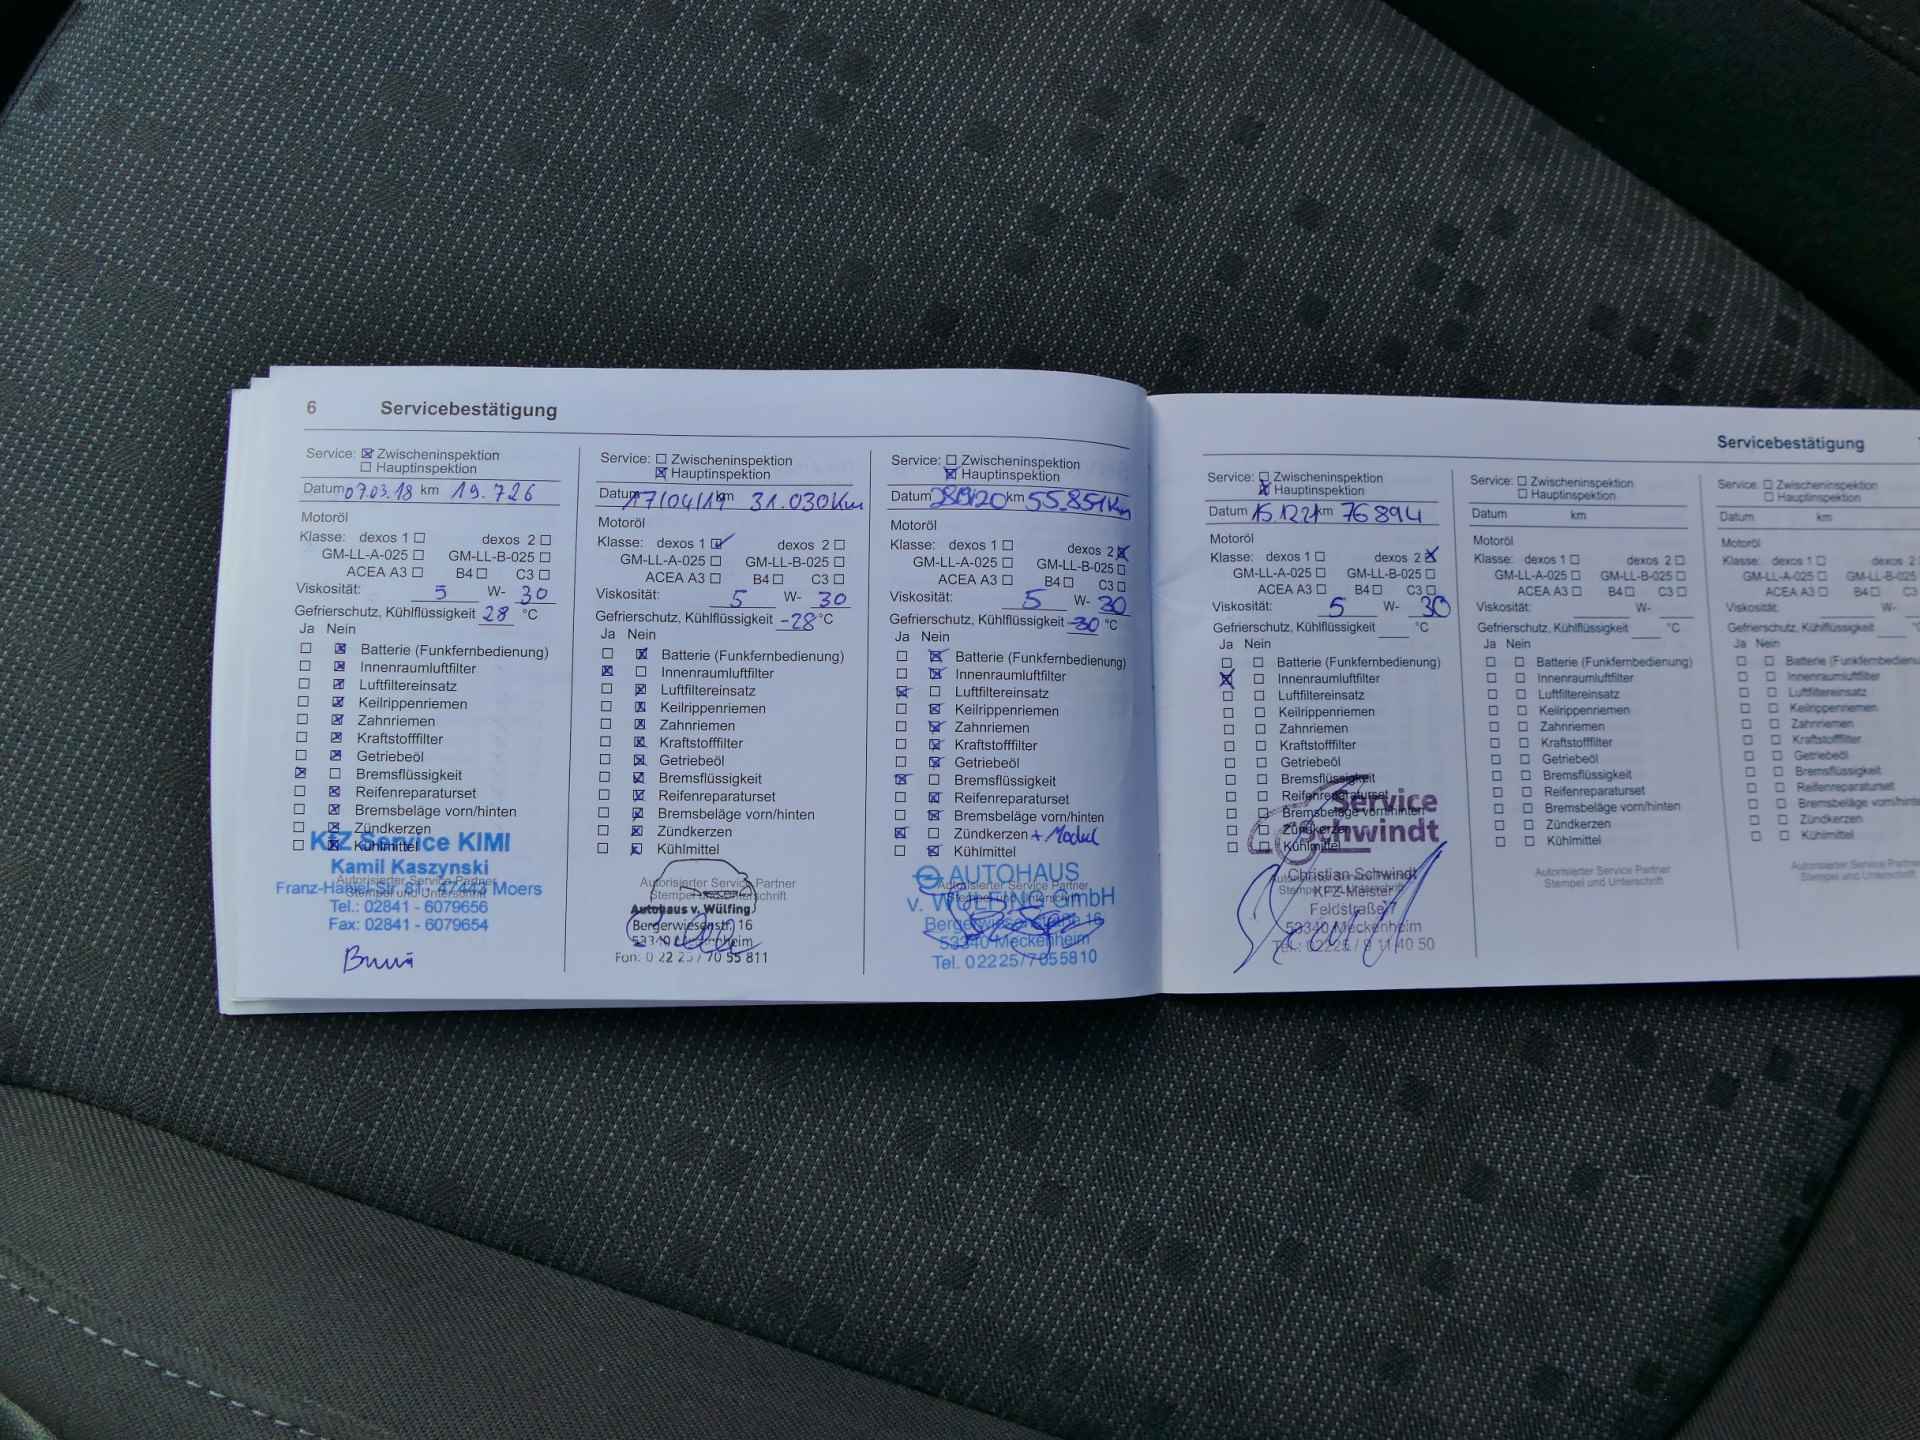 6 Servicebestätigung
Service: ☒ Zwischeninspektion
☐ Hauptinspektion
Datum 07.03.18 km 19.726
Motoröl
Klasse: dexos 1 ☐ dexos 2 ☐
GM-LL-A-025 ☐ GM-LL-B-025 ☐
ACEA A3 ☐ B4 ☐ C3 ☐
Viskosität: 5 W- 30
Gefrierschutz, Kühlflüssigkeit 28 °C
Ja Nein
☐ ☒ Batterie (Funkfernbedienung)
☐ ☒ Innenraumluftfilter
☐ ☒ Luftfiltereinsatz
☐ ☒ Keilrippenriemen
☐ ☒ Zahnriemen
☐ ☒ Kraftstofffilter
☐ ☒ Getriebeöl
☒ ☐ Bremsflüssigkeit
☐ ☒ Reifenreparaturset
☐ ☒ Bremsbeläge vorn/hinten
☐ ☒ Zündkerzen
☐ ☒ Kühlmittel
KfZ Service KIMI
Kamil Kaszynski
Autorisierter Service Partner
Franz-Haniel-Str. 81 - 47443 Moers
Stempel und Unterschrift
Tel.: 02841 - 6079656
Fax: 02841 - 6079654
Service: ☐ Zwischeninspektion
☒ Hauptinspektion
Datum 17/04/19 km 31.030 Km
Motoröl
Klasse: dexos 1 ☒ dexos 2 ☐
GM-LL-A-025 ☐ GM-LL-B-025 ☐
ACEA A3 ☐ B4 ☐ C3 ☐
Viskosität: 5 W- 30
Gefrierschutz, Kühlflüssigkeit -28 °C
Ja Nein
☐ ☒ Batterie (Funkfernbedienung)
☒ ☐ Innenraumluftfilter
☐ ☒ Luftfiltereinsatz
☐ ☒ Keilrippenriemen
☐ ☒ Zahnriemen
☐ ☒ Kraftstofffilter
☐ ☒ Getriebeöl
☐ ☒ Bremsflüssigkeit
☐ ☒ Reifenreparaturset
☐ ☒ Bremsbeläge vorn/hinten
☐ ☒ Zündkerzen
☐ ☒ Kühlmittel
Autorisierter Service Partner
Stempel und Unterschrift
Autohaus v. Wülfing
Bergerwiesenstr. 16
53340 Meckenheim
Fon: 0 22 25 / 70 55 811
Service: ☐ Zwischeninspektion
☒ Hauptinspektion
Datum km 55.851 Km
Motoröl
Klasse: dexos 1 ☐ dexos 2 ☒
GM-LL-A-025 ☐ GM-LL-B-025 ☐
ACEA A3 ☐ B4 ☐ C3 ☐
Viskosität: 5 W- 30
Gefrierschutz, Kühlflüssigkeit -30 °C
Ja Nein
☐ ☒ Batterie (Funkfernbedienung)
☐ ☒ Innenraumluftfilter
☒ ☐ Luftfiltereinsatz
☐ ☒ Keilrippenriemen
☐ ☒ Zahnriemen
☐ ☒ Kraftstofffilter
☐ ☒ Getriebeöl
☒ ☐ Bremsflüssigkeit
☐ ☒ Reifenreparaturset
☐ ☒ Bremsbeläge vorn/hinten
☒ ☐ Zündkerzen + Modul
☐ ☒ Kühlmittel
AUTOHAUS
Autorisierter Service Partner
v. WÜLFING GmbH
Stempel und Unterschrift
Bergerwiesenstraße 16
53340 Meckenheim
Tel. 02225/7055810
Servicebestätigung
Service: ☐ Zwischeninspektion
☒ Hauptinspektion
Datum 15.12.21 km 76894
Motoröl
Klasse: dexos 1 ☐ dexos 2 ☒
GM-LL-A-025 ☐ GM-LL-B-025 ☐
ACEA A3 ☐ B4 ☐ C3 ☐
Viskosität: 5 W- 30
Gefrierschutz, Kühlflüssigkeit °C
Ja Nein
☐ ☐ Batterie (Funkfernbedienung)
☒ ☐ Innenraumluftfilter
☐ ☐ Luftfiltereinsatz
☐ ☐ Keilrippenriemen
☐ ☐ Zahnriemen
☐ ☐ Kraftstofffilter
☐ ☐ Getriebeöl
☐ ☐ Bremsflüssigkeit
☐ ☐ Reifenreparaturset
☐ ☐ Bremsbeläge vorn/hinten
☐ ☐ Zündkerzen
☐ ☐ Kühlmittel
Service
Schwindt
Christian Schwindt
Autorisierter Service Partner
KFZ-Meister
Stempel und Unterschrift
Feldstraße 7
53340 Meckenheim
Tel.: 02225 / 9 11 40 50
Service: ☐ Zwischeninspektion
☐ Hauptinspektion
Datum km
Motoröl
Klasse: dexos 1 ☐ dexos 2 ☐
GM-LL-A-025 ☐ GM-LL-B-025 ☐
ACEA A3 ☐ B4 ☐ C3 ☐
Viskosität: W-
Gefrierschutz, Kühlflüssigkeit °C
Ja Nein
☐ ☐ Batterie (Funkfernbedienung)
☐ ☐ Innenraumluftfilter
☐ ☐ Luftfiltereinsatz
☐ ☐ Keilrippenriemen
☐ ☐ Zahnriemen
☐ ☐ Kraftstofffilter
☐ ☐ Getriebeöl
☐ ☐ Bremsflüssigkeit
☐ ☐ Reifenreparaturset
☐ ☐ Bremsbeläge vorn/hinten
☐ ☐ Zündkerzen
☐ ☐ Kühlmittel
Autorisierter Service Partner
Stempel und Unterschrift
Service: ☐ Zwischeninspektion
☐ Hauptinspektion
Datum km
Motoröl
Klasse: dexos 1 ☐ dexos 2
GM-LL-A-025 ☐ GM-LL-B-02
ACEA A3 ☐ B4 ☐ C3
Viskosität: W-
Gefrierschutz, Kühlflüssigkeit
Ja Nein
☐ ☐ Batterie (Funkfernbedienu
☐ ☐ Innenraumluftfilter
☐ ☐ Luftfiltereinsatz
☐ ☐ Keilrippenriemen
☐ ☐ Zahnriemen
☐ ☐ Kraftstofffilter
☐ ☐ Getriebeöl
☐ ☐ Bremsflüssigkeit
☐ ☐ Reifenreparaturset
☐ ☐ Bremsbeläge vorn/hinte
☐ ☐ Zündkerzen
☐ ☐ Kühlmittel
Autorisierter Service Partner
Stempel und Unterschrift